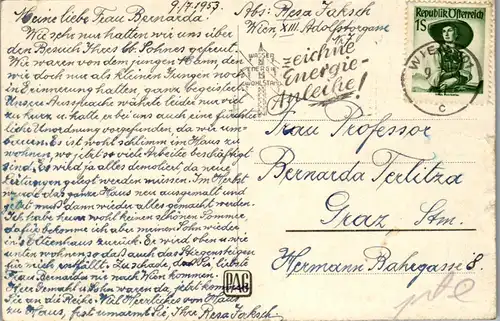 9./7. 1953.
Meine liebe Frau Bernarda.
Wie sehr nur hatten wir uns über
den Besuch Ihres lb. Sohnes gefreut.
Wie waren von dem jungen Mann, den
wir doch nur als kleinen Jungen noch
in Erinnerung hatten, ganz begeistert.
Unsere Aussprache währte leider nur viel
zu kurz u. hatte er bei uns auch eine fürchter
liche Unordnung vorgefunden, da wir um-
bauen. Es ist wohl schlimm im Haus zu
wohnen, wo jetzt so viele Arbeiter beschäftigt
sind. Es wird ja alles demoliert, da neue
gelegt werden müssen. Im Herbst
wird das ganze Haus neu ausgemalt und
jetzt muss dann wieder alles gemacht werden.
Ich habe heuer wohl keinen schönen Sommer,
dafür bekomme ich aber meinen Sohn wieder
in's Elternhaus zurück. Er wird oben u. wir
unten wohnen, so daß auch das Stiegensteigen
für mich entfällt. Zu schade, daß Sie, liebste
Frau Bernarda nie nach Wien kommen.
Ihr Gemahl u. Sohn waren da, jetzt kommen
Sie an die Reihe. Viel Herzliches von Haus
zu Haus, fest umarmt Sie, Ihre Resa Jaksch
Abs: Resa Jaksch
Wien, XIII. Adolfstorgasse
zeichne
Energie-
Anleihe!
WIEN
9
C
Republik Österreich
1S
Frau Professor
Bernarda Terlitza
Graz Stm.
Hermann Bahrgasse 8.
PAG